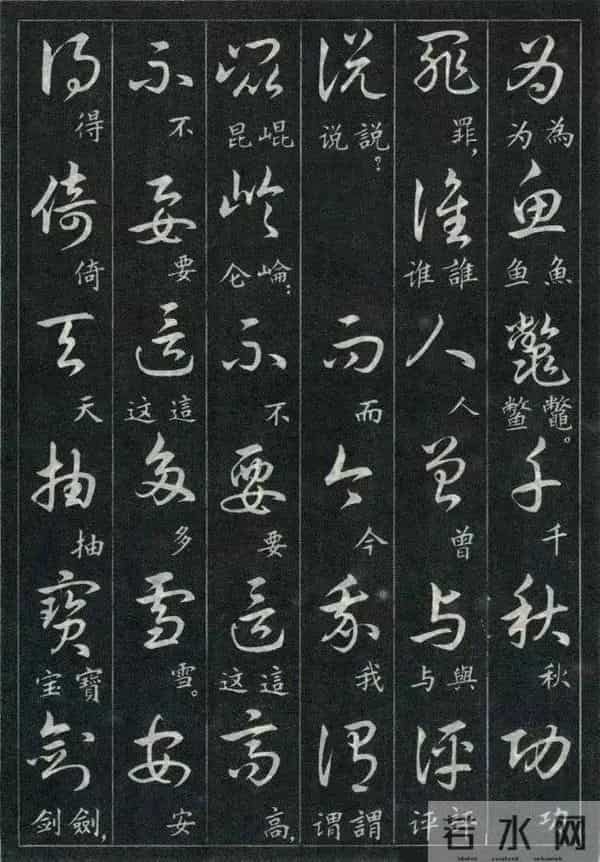 為 为為 魚 鱼魚 鼈 鳖鼈。 千 千 秋 秋 功 功
罪 罪, 誰 谁誰 人 人 曾 曾 与 与與 評 评評
説 说説? 而 而 今 今 我 我 謂 谓謂
崐 昆崐 崘 仑崘: 不 不 要 要 這 这這 高 高,
不 不 要 要 這 这這 多 多 雪 雪。 安 安
得 得 倚 倚 天 天 抽 抽 寶 宝寶 劍 剑劍,
若水网